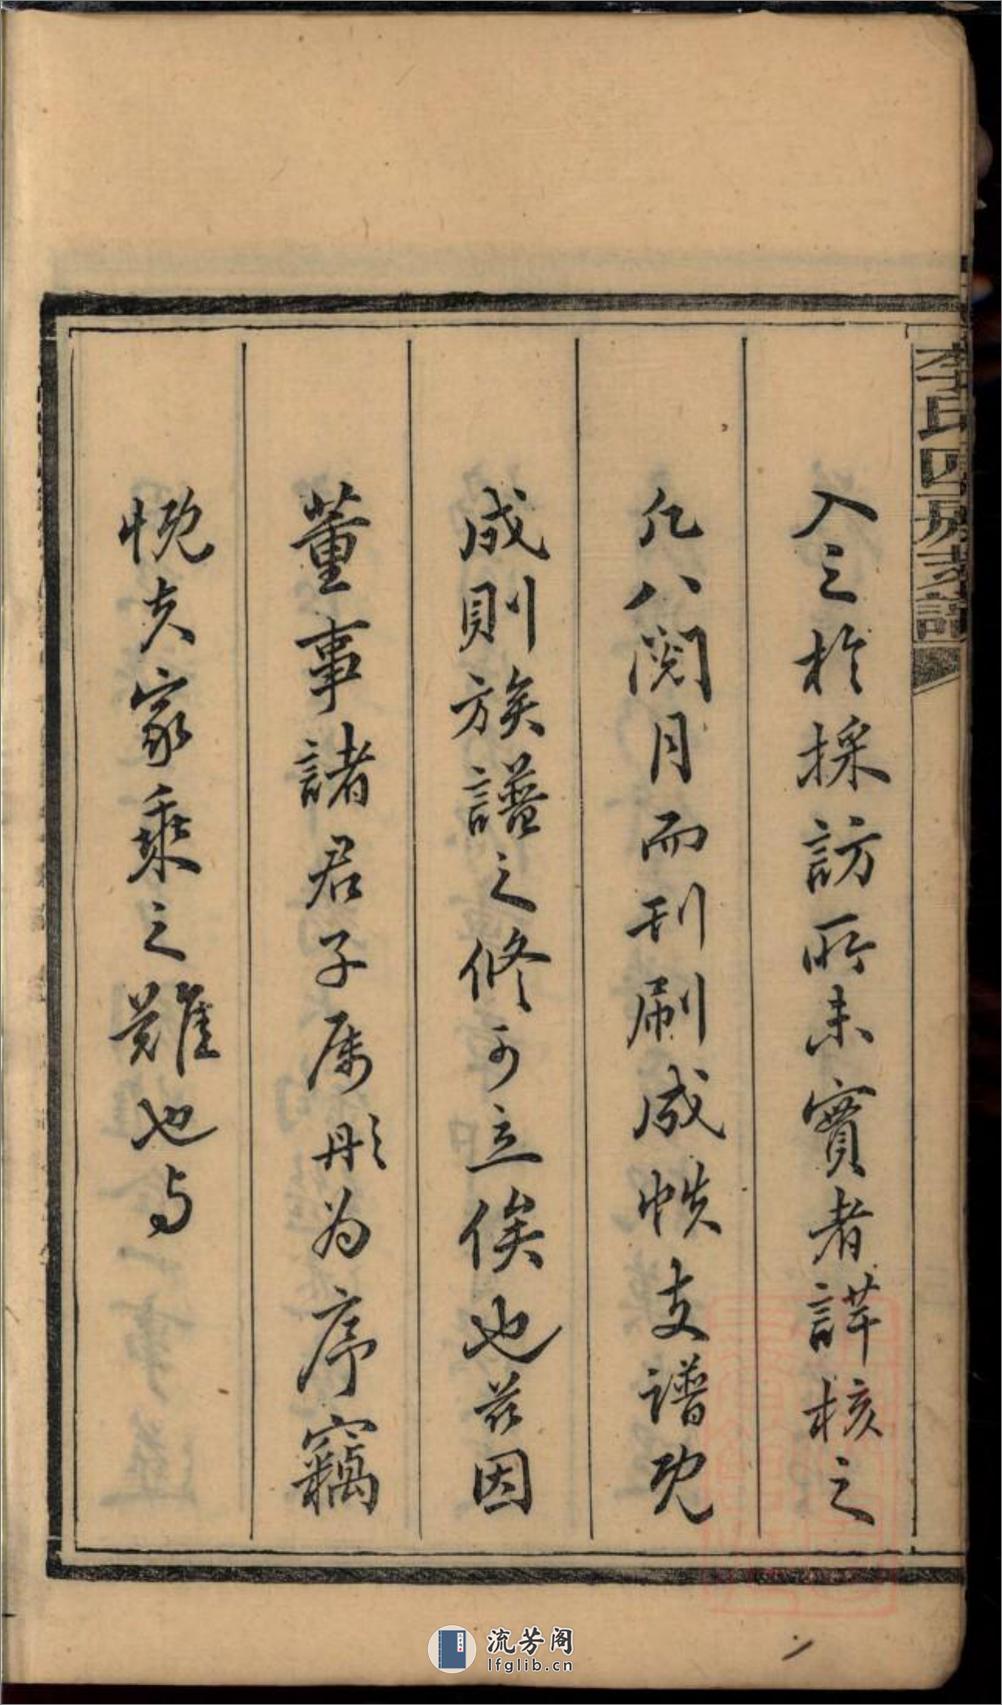 李氏四房支譜
入之於採訪所未實者詳核之
凡八閱月而刊刷成帙支譜既
成則族譜之修可立俟也茲因
董事諸君子属彤為序竊
慨夫家乘之難也与
流芳阁
lfglib.cn